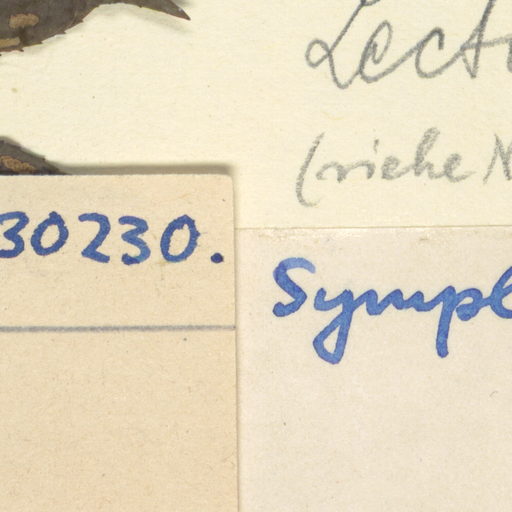 Lecto
(siehe N
30230.
Sympl